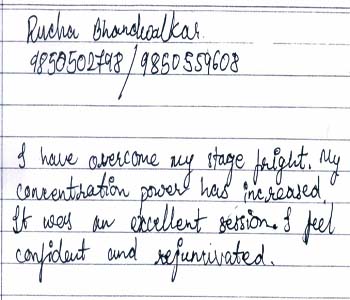 Rucha Bhandwalkar.
9850502798 / 9850559608
I have overcome my stage fright. My
concentration power has increased.
It was an excellent session. I feel
confident and refunrivated.